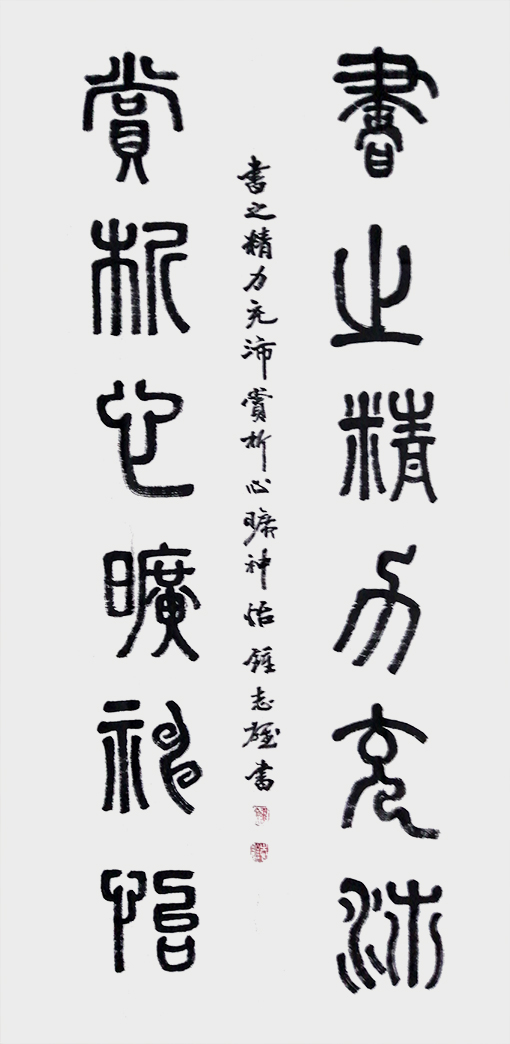 書之精力充沛
書之精力充沛賞析心曠神怡鍾志書
賞析心曠神怡